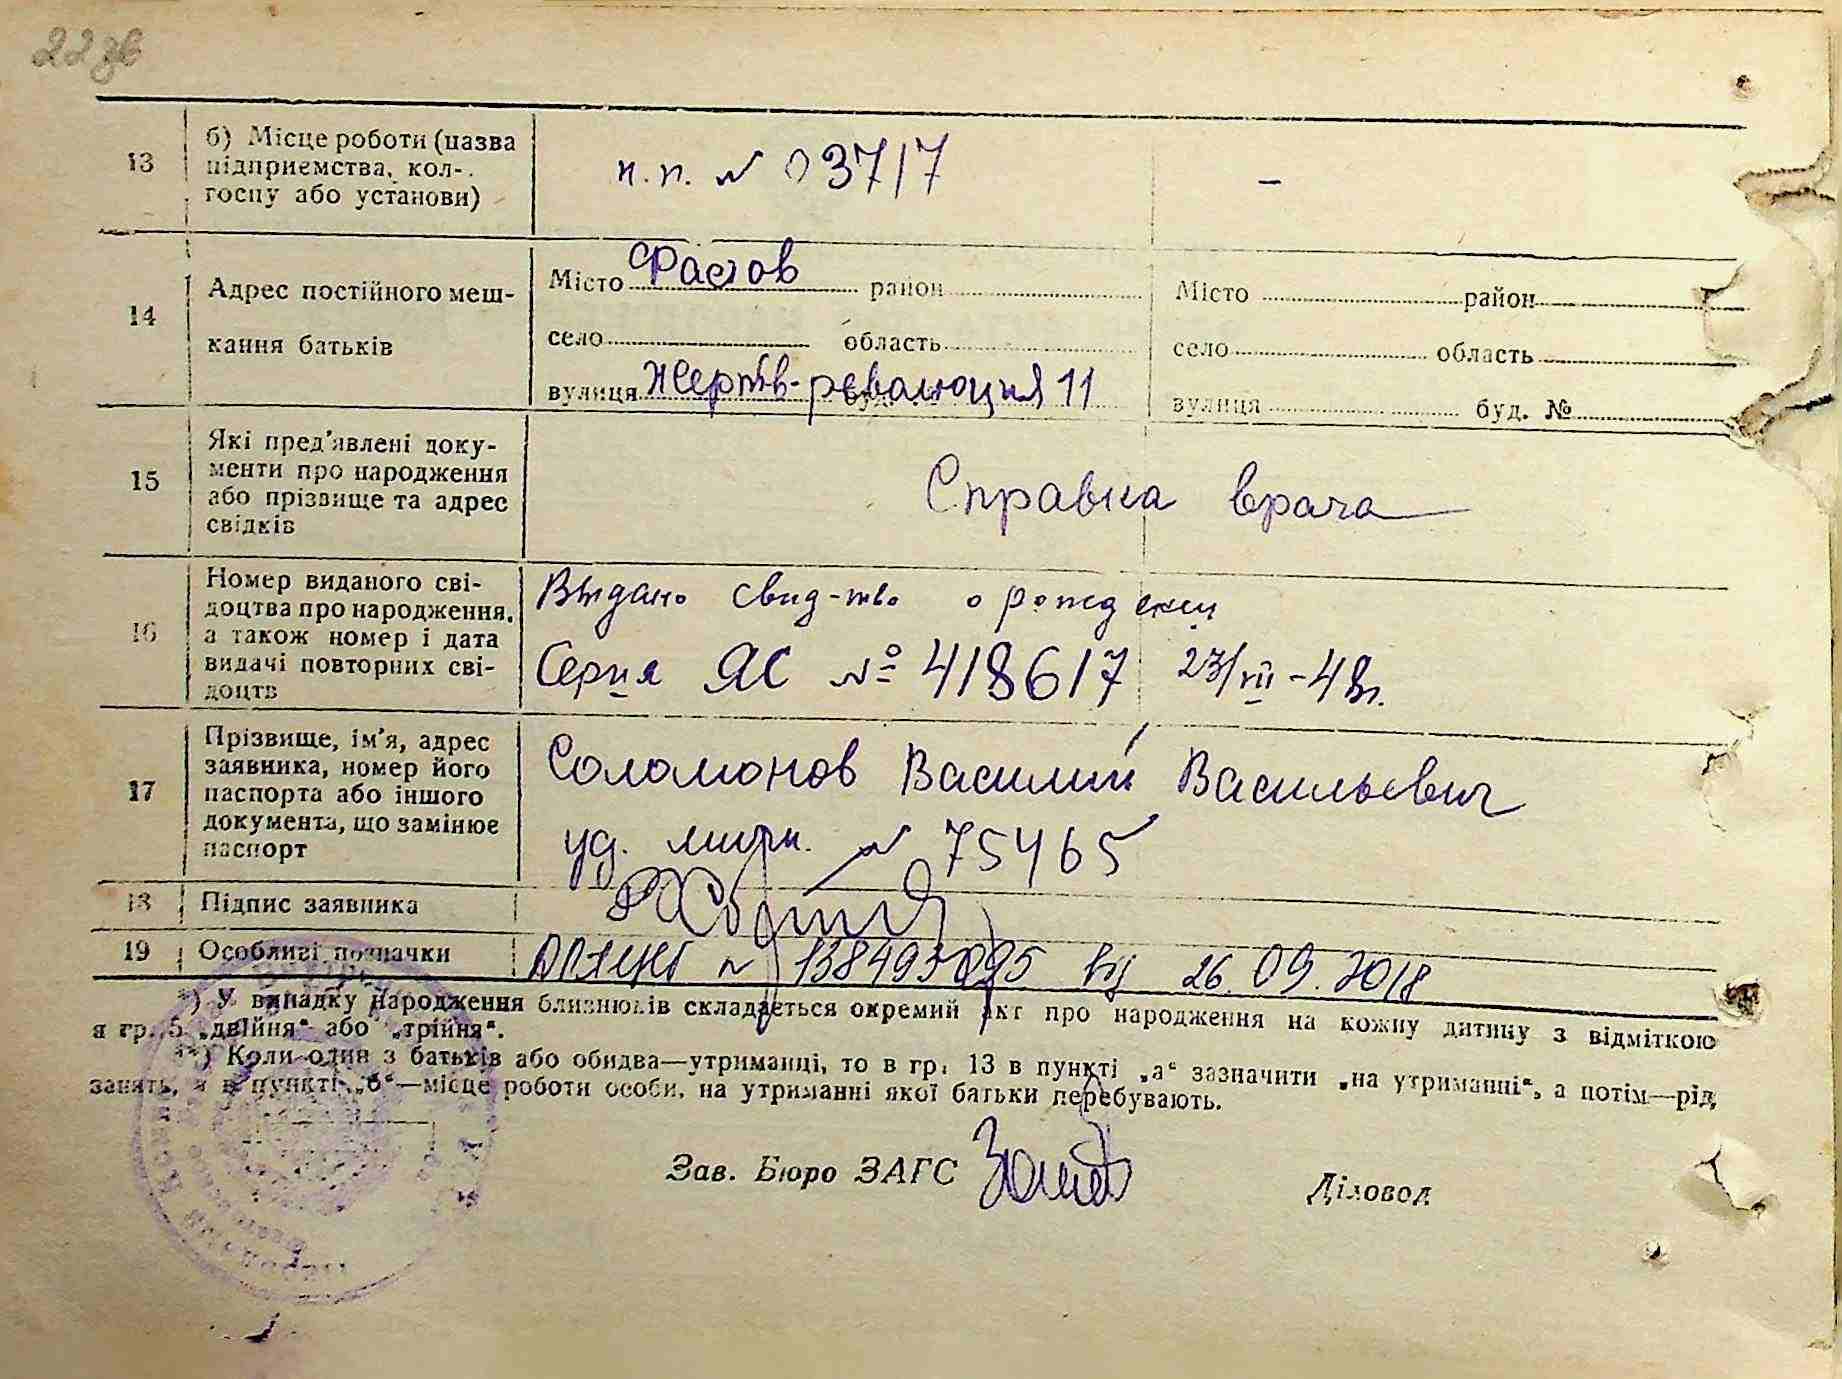 22 зв
13
б) Місце роботи (назва
підприємства, кол-
госпу або установи)
п.п. № 03717
–
14
Адрес постійного меш-
кання батьків
Місто Фастов район
село область
вулиця Жертв-революция 11
Місто район
село область
вулиця буд. №
15
Які пред'явлені доку-
менти про народження
або прізвище та адрес
свідків
Справка врача
16
Номер виданого сві-
доцтва про народження,
а також номер і дата
видачі повторних сві-
доцтв
Выдано свид-тво о рождении
Серия ЯС № 418617 23/VII-48г.
17
Прізвище, ім'я, адрес
заявника, номер його
паспорта або іншого
документа, що замінює
паспорт
Соломонов Василий Васильевич
уд. личн. № 75465
18
Підпис заявника
19
Особливі позначки
№ від 26.09.2018
*) У випадку народження близнюків складається окремий акт про народження на кожну дитину з відміткою
в гр. 5 „двійня“ або „трійня“.
**) Коли один з батьків або обидва—утриманці, то в гр. 13 в пункті „а“ зазначити „на утриманні“, а потім—рід
занять, а в пункті „б“—місце роботи особи, на утриманні якої батьки перебувають.
Зав. Бюро ЗАГС
Діловод